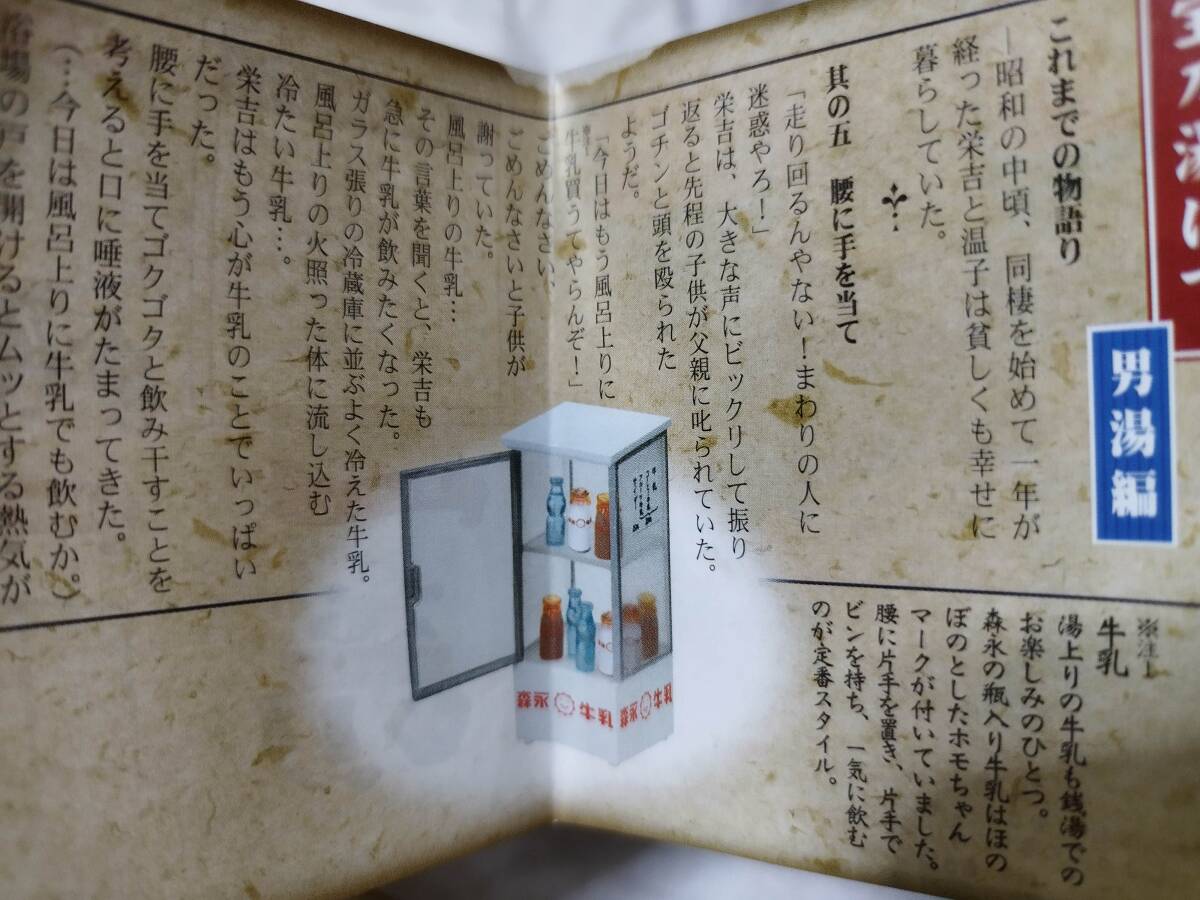 男湯編
これまでの物語り
―昭和の中頃、同棲を始めて一年が
経った栄吉と温子は貧しくも幸せに
暮らしていた。
其の五　腰に手を当て
「走り回るんやない！まわりの人に
迷惑やろ！」
栄吉は、大きな声にビックリして振り
返ると先程の子供が父親に叱られていた。
ゴチンと頭を殴られた
ようだ。
「今日はもう風呂上りに
牛乳買うてやらんぞ！」
ごめんなさい、
ごめんなさいと子供が
謝っていた。
風呂上りの牛乳…
その言葉を聞くと、栄吉も
急に牛乳が飲みたくなった。
ガラス張りの冷蔵庫に並ぶよく冷えた牛乳。
風呂上りの火照った体に流し込む
冷たい牛乳…。
栄吉はもう心が牛乳のことでいっぱい
だった。
腰に手を当てゴクゴクと飲み干すことを
考えると口に唾液がたまってきた。
（…今日は風呂上りに牛乳でも飲むか。）
浴場の戸を開けるとムッとする熱気が
※注1
牛乳
湯上りの牛乳も銭湯での
お楽しみのひとつ。
森永の瓶入り牛乳はほの
ぼのとしたホモちゃん
マークが付いていました。
腰に片手を置き、片手で
ビンを持ち、一気に飲む
のが定番スタイル。
森永 牛乳
森永 牛乳